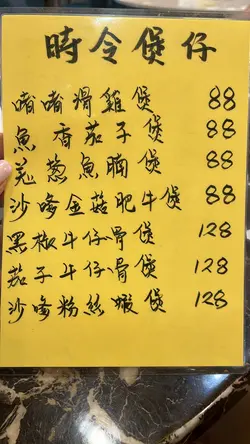 時令煲仔
啫啫滑雞煲 88
魚香茄子煲 88
羌葱魚腩煲 88
沙嗲金菇肥牛煲 88
黑椒牛仔骨煲 128
茄子牛仔骨煲 128
沙嗲粉絲蝦煲 128